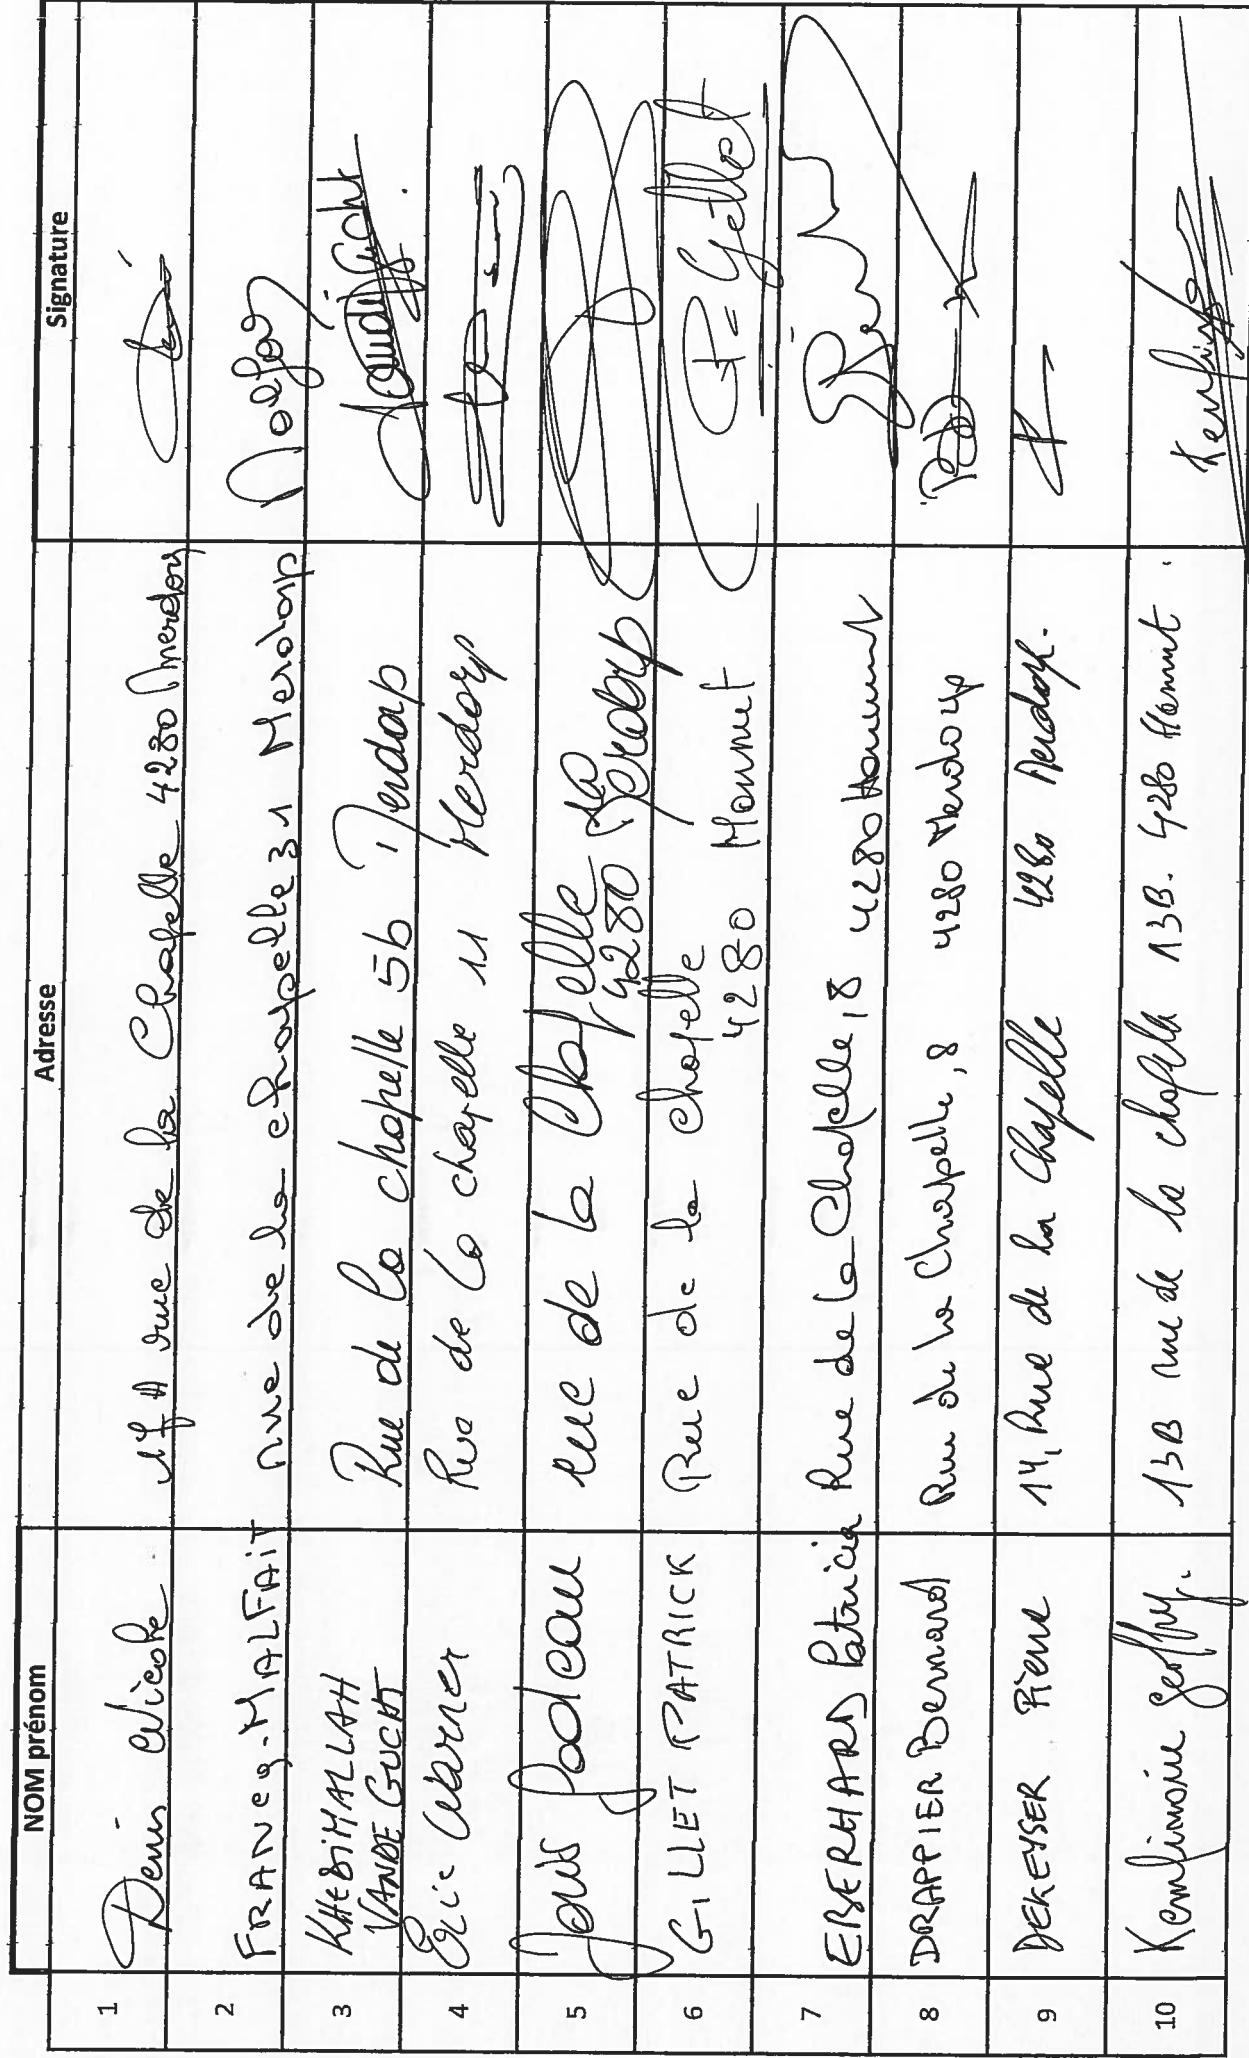 NOM prénom Adresse Signature
1 Denis Nicole 17 A rue de la Chapelle 4280 Merdorp
2 FRANCQ-MALFAIT rue de la chapelle 31 Merdorp
3 KHEDIMALLAH
VANDE GUCHT Rue de la chapelle 5b Merdorp
4 Eric Warner Rue de la chapelle 11 Merdorp
5 rue de la Chapelle
4280 Merdorp
6 GILLET PATRICK Rue de la chapelle
4280 Hannut P. Gillet
7 EBERHARD Patricia Rue de la Chapelle, 8 4280 Hannut
8 DRAPPIER Bernard Rue de la Chapelle, 8 4280 Merdorp
9 DEKEYSER Pierre 14, Rue de la Chapelle 4280 Merdorp.
10 13B rue de la chapelle 13B. 4280 Hannut.